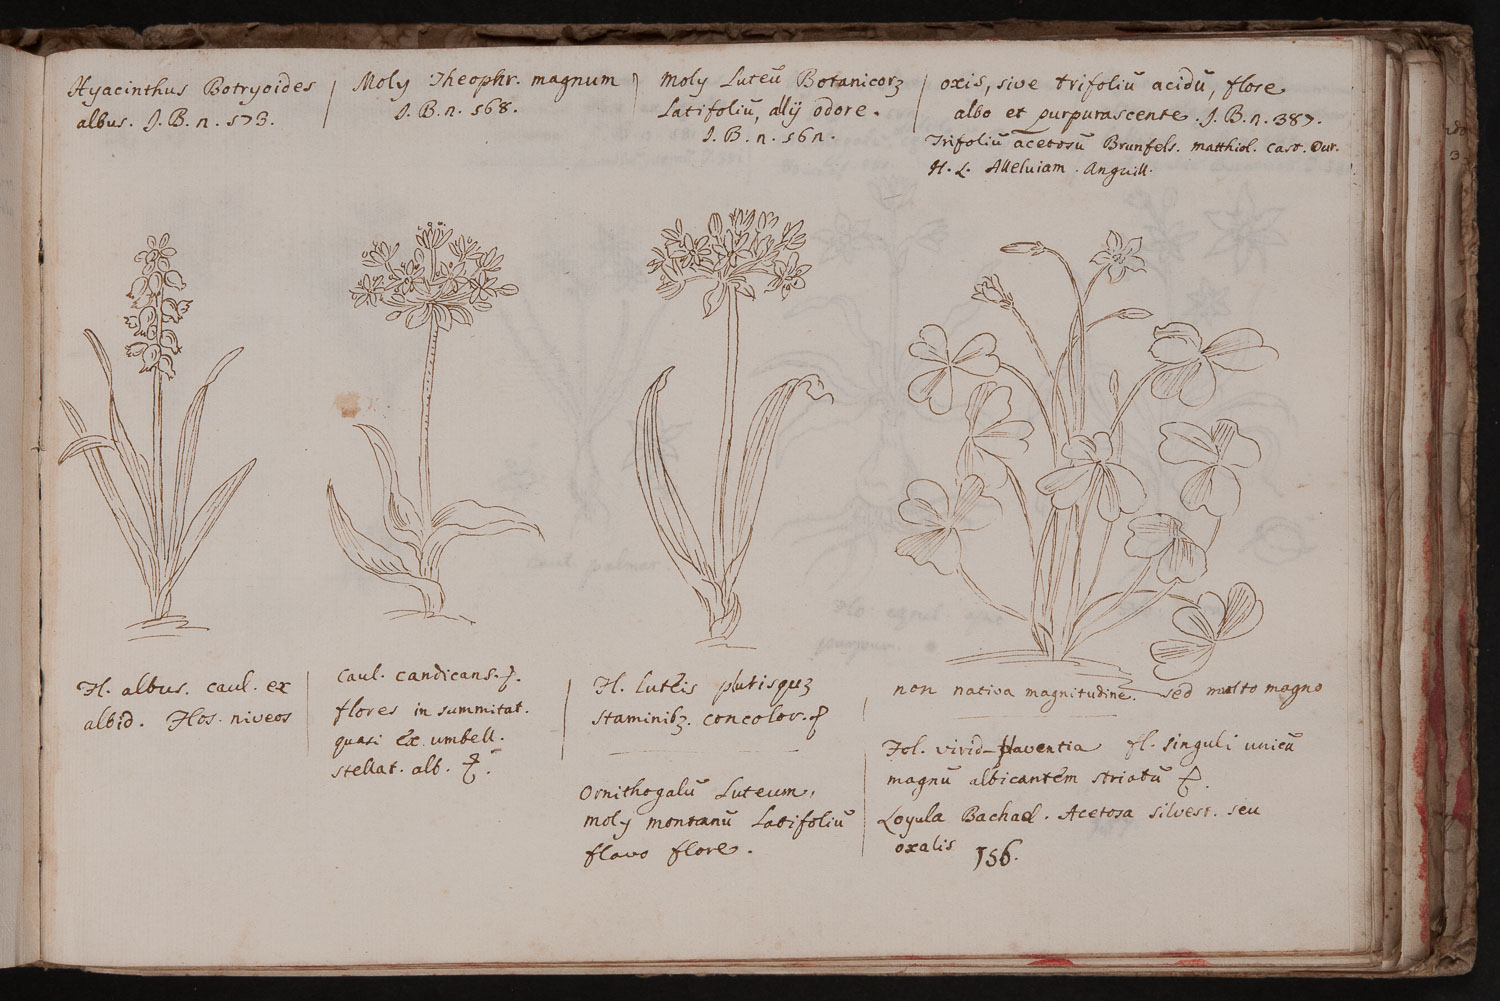 Hyacinthus Botryoides
albus. J. B. n. 573.
Moly Theophr. magnum
J. B. n. 568.
Moly Luteū Botanicorʒ
Latifoliū, allÿ odore.
J. B. n. 56n.
oxis, sive trifoliū acidū, flore
albo et purpurascente. J. B. n. 387.
Trifoliū acetosū Brunfels. matthiol. cast. Dur.
H. L. Alleluiam. Anguill.
Fl. albus. caul. ex
albid. Flos. niveos
Caul. candicans.
flores in summitat.
quasi ex umbell.
stellat. alb.
Fl. Luteis plurisqʒ
staminibʒ. concolor.
Ornithogalū Luteum,
moly montanū Latifoliū
flavo flore.
non nativa magnitudine. sed multo magno
Fol. virid- flaventia fl. singuli unicū
magnū albicantem striatū
Loyula Bachad. Acetosa silvest. seu
oxalis 156.